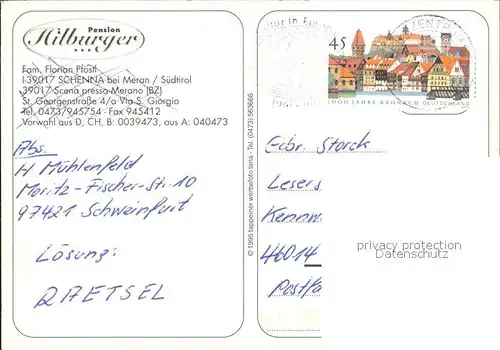 Pension
Hilburger
Fam. Florian Pföstl
I-39017 SCHENNA bei Meran / Südtirol
39017 Scena presso Merano (BZ)
St. Georgenstraße 4/a Via S. Giorgio
Tel. 0473/945754 - Fax 945412
Vorwahl aus D, CH, B: 0039473, aus A: 040473
Abs.
H Mühlenfeld
Moritz-Fischer-Str. 10
97421 Schweinfurt
Lösung:
RAETSEL
© 1995 tappeiner werbefoto lana - Tel. (0473) 563666
45
1000 JAHRE KRONACH DEUTSCHLAND
Gebr. Storck
Lesers
Kennw
46014
Postfa
privacy protection
Datenschutz